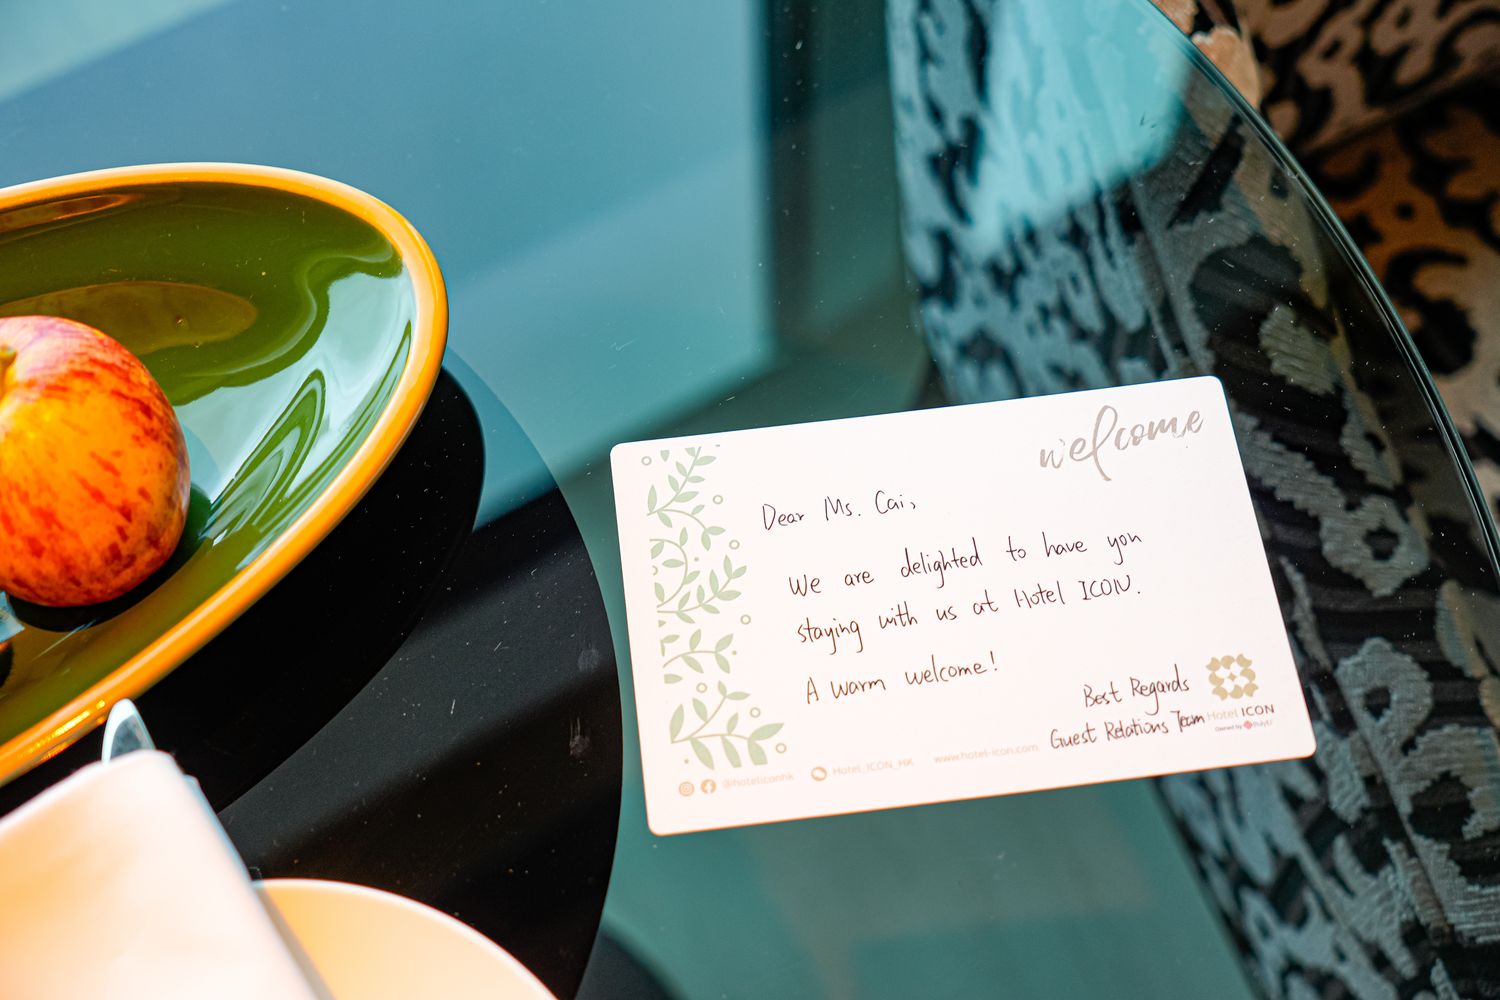 welcome
Dear Ms. Cai,
We are delighted to have you
staying with us at Hotel ICON.
A warm welcome!
Best Regards
Guest Relations Team
Hotel ICON
Owned by PolyU
@hoteliconhk Hotel_ICON_HK www.hotel-icon.com